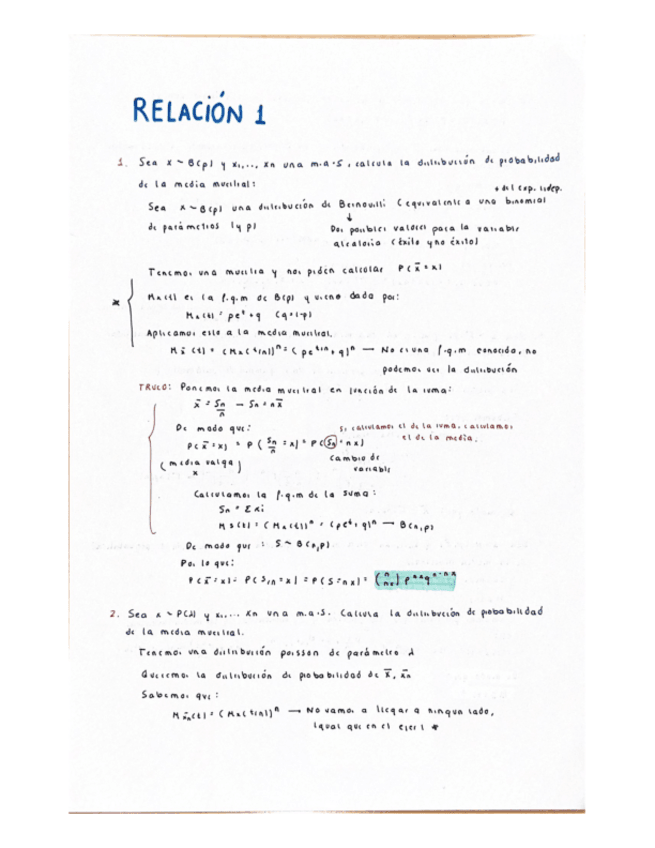 RELACIÓN 1
1. Sea x ~ B(p) y x₁,..., xn una m.a.s, calcula la distribución de probabilidad
de la media muestral:
+ del exp. indep.
Sea x ~ B(p) una distribución de Bernouilli (equivalente a una binomial
de parámetros 1 y p)
↓
Dos posibles valores para la variable
aleatoria (éxito y no éxito)
Tenemos una muestra y nos piden calcular P(x̄ = x)
* Mx(t) es la f.g.m de B(p) y viene dada por:
Mx(t) = pe^t + q (q=1-p)
Aplicamos esto a la media muestral.
Mx̄(t) = (Mx(t/n))^n = (pe^t/n + q)^n → No es una f.g.m conocida, no
podemos ver la distribución
TRUCO: Ponemos la media muestral en función de la suma:
x̄ = Sn/n → Sn = nx̄
De modo que:
Si calculamos el de la suma, calculamos
el de la media.
P(x̄ = x) = P(Sn/n = x) = P(Sn = nx)
(media valga x)
cambio de
variable
Calculamos la f.g.m de la suma:
Sn = Σxi
Ms(t) = (Mx(t))^n = (pe^t + q)^n → B(n,p)
De modo que: S ~ B(n,p)
Por lo que:
P(x̄ = x) = P(S/n = x) = P(S = nx) = (n nx) p^nx q^n-nx
2. Sea x ~ P(λ) y x₁,... xn una m.a.s. Calcula la distribución de probabilidad
de la media muestral.
Tenemos una distribución poisson de parámetro λ
Queremos la distribución de probabilidad de x̄, x̄n
Sabemos que:
Mx̄n(t) = (Mx(t/n))^n → No vamos a llegar a ningun lado,
igual que en el ejer 1 *